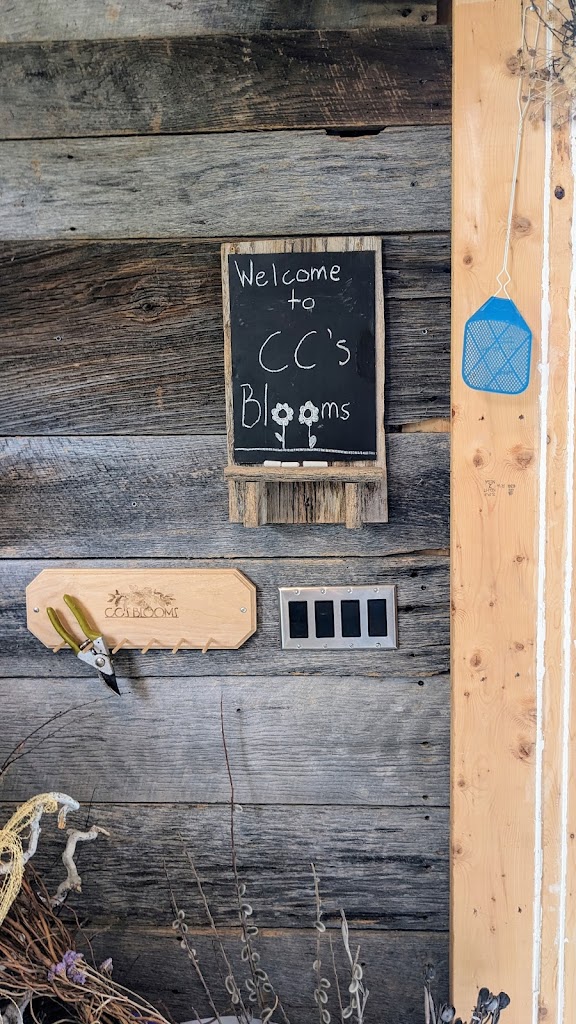 Welcome
to
CC's
Blooms
CC'S BLOOMS